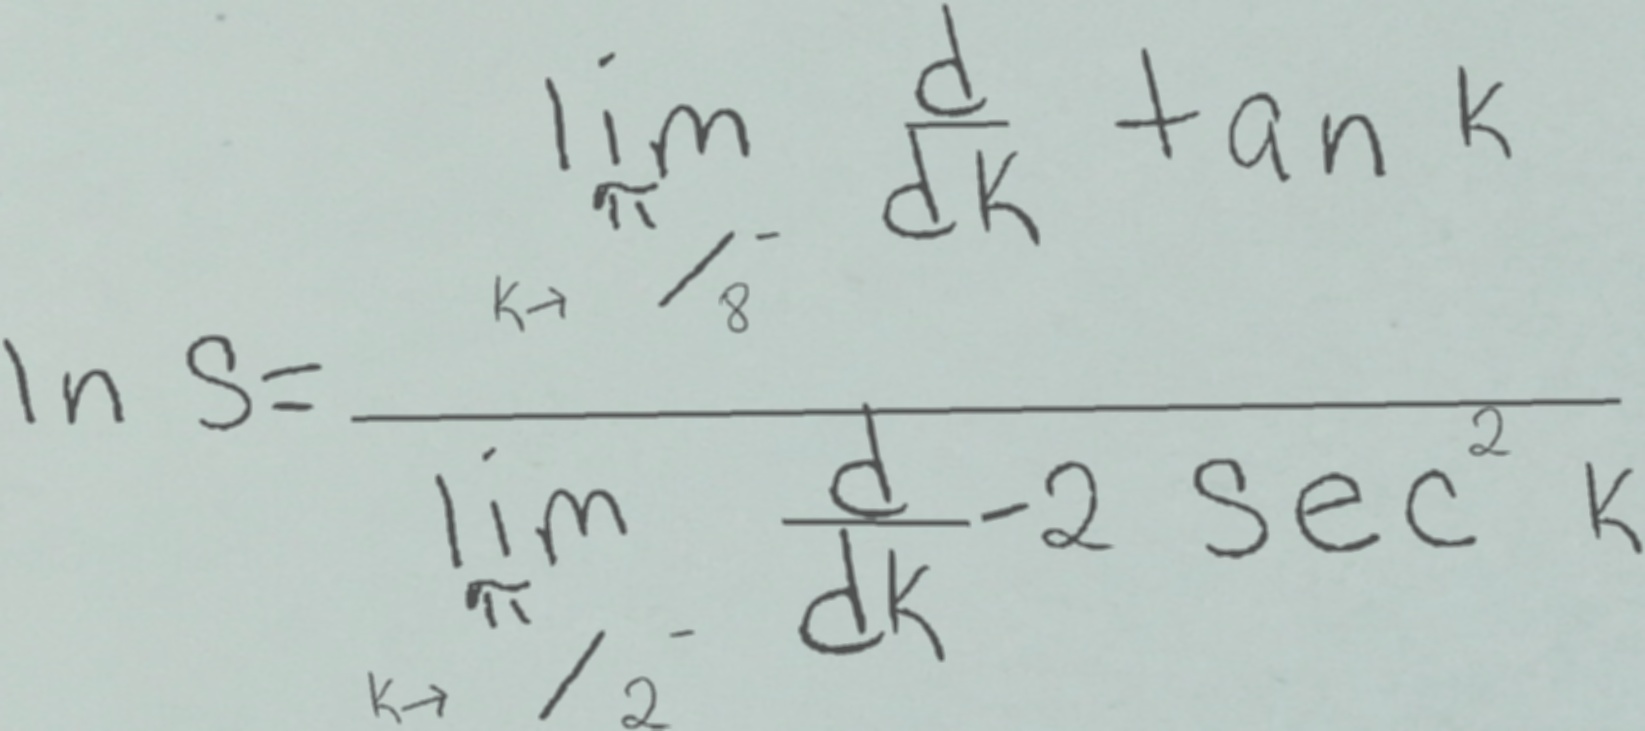 ln S = \frac{\lim_{k \to \pi/8^-} \frac{d}{dk} \tan k}{\lim_{k \to \pi/2^-} \frac{d}{dk} -2 \sec^2 k}